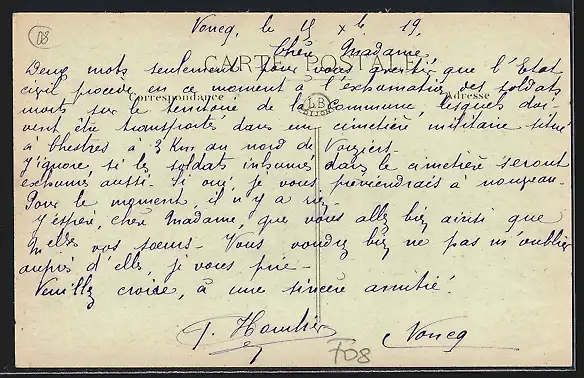 08
Voncq, le 15 Xb 19.
Chère Madame,
CARTE POSTALE
Deux mots seulement pour vous avertir que l'Etat
civil procède en ce moment à l'exhumation des soldats
Correspondance
LB
Adresse
morts sur le territoire de la commune, lesquels doi-
vent être transportés dans un cimetière militaire situé
à Chestres à 3 Km au nord de Vouziers.
J'ignore si les soldats inhumés dans le cimetière seront
exhumés aussi. Si oui, je vous préviendrais à nouveau.
Pour le moment, il n'y a rien.
J'espère, chère Madame, que vous allez bien ainsi que
Melles vos soeurs. Vous voudrez bien ne pas m'oublier
auprès d'elles, je vous prie.
Veuillez croire, à une sincère amitié.
Voncq
F08